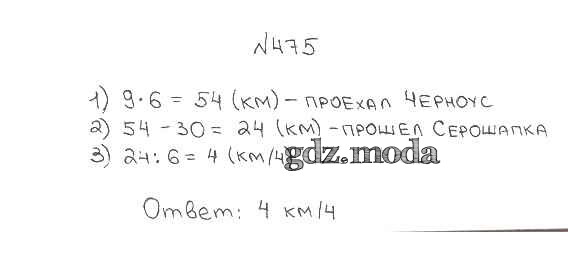 №475
1) 9·6 = 54 (км) – проехал Черноус
2) 54 – 30 = 24 (км) – прошел Серошапка
3) 24 : 6 = 4 (км/ч
gdz.moda
Ответ: 4 км/ч